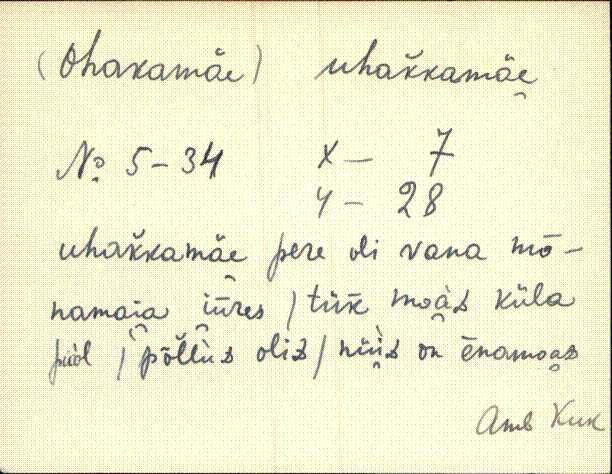 (Ohakamäe) uhaǩkamäe̯
No 5-34 X - 7
Y - 28
uhaǩkamäe̯ pere oli vana mō-
namai̯a i̯üres / tüḱ moàs küla
pùòl / põllùs olìs / nüìs on ēnamoas
Amb Kuk